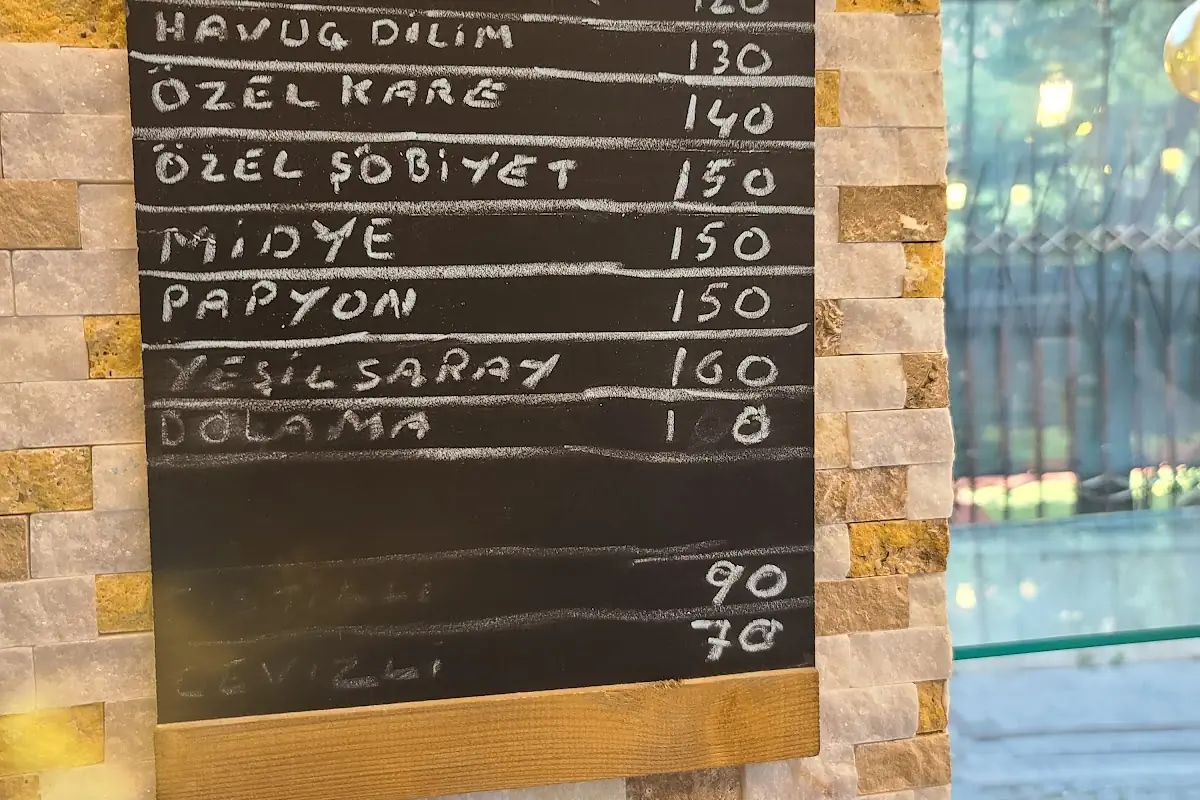 120
HAVUÇ DİLİM 130
ÖZEL KARE 140
ÖZEL ŞÖBİYET 150
MİDYE 150
PAPYON 150
YEŞİL SARAY 160
DOLAMA
90
CEVİZLİ 70